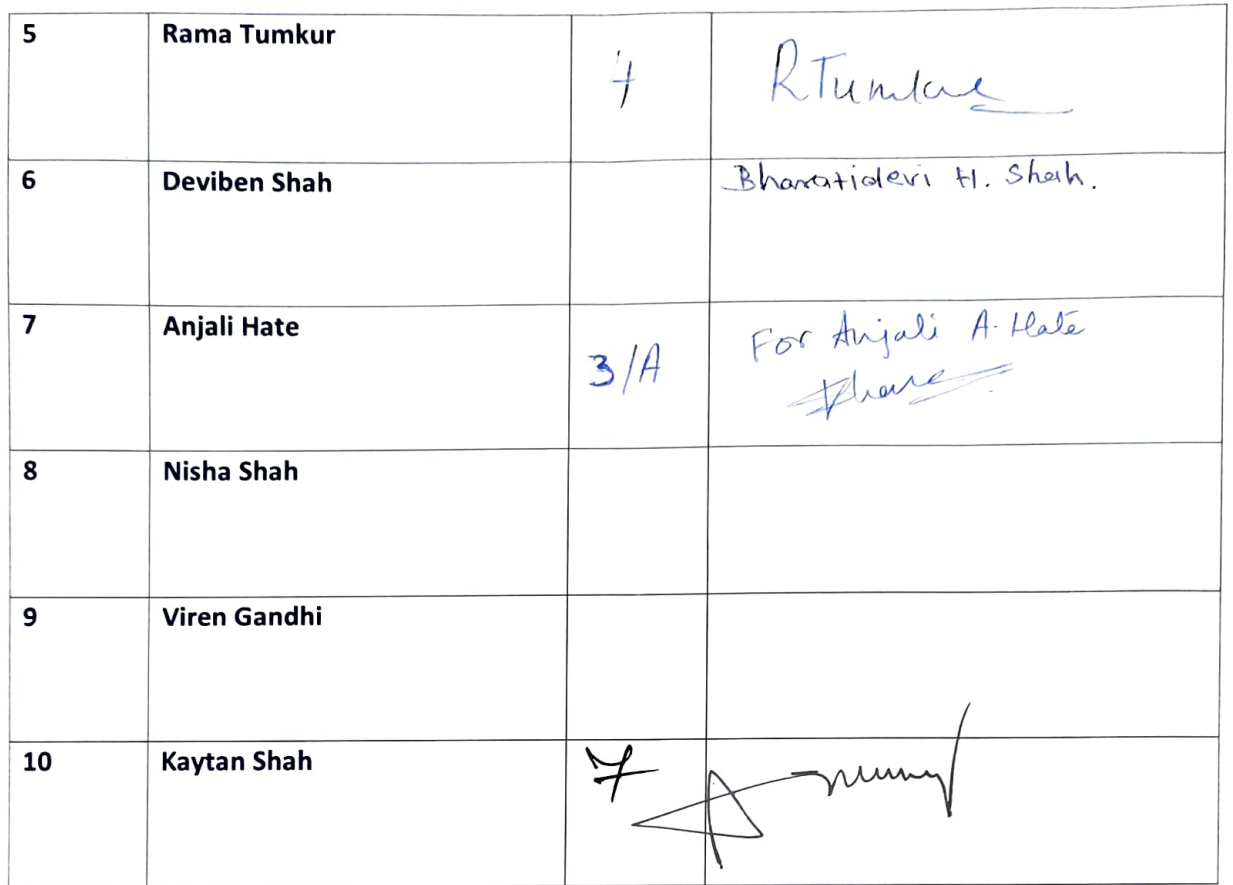 5 Rama Tumkur R Tumkur
6 Deviben Shah Bharatidevi H. Shah.
7 Anjali Hate 3/A For Anjali A. Hate
8 Nisha Shah
9 Viren Gandhi
10 Kaytan Shah 7